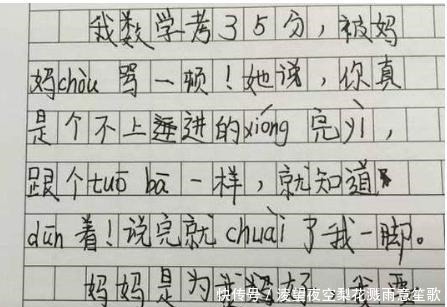 我数学考35分，被妈
妈chòu骂一顿！她说，你真
是个不上进的xióng完yì，
跟个tuō bā一样，就知道
dūn着！说完就chuài了我一脚。
妈妈是为
快传号/凌望夜空梨花溅雨意笙歌